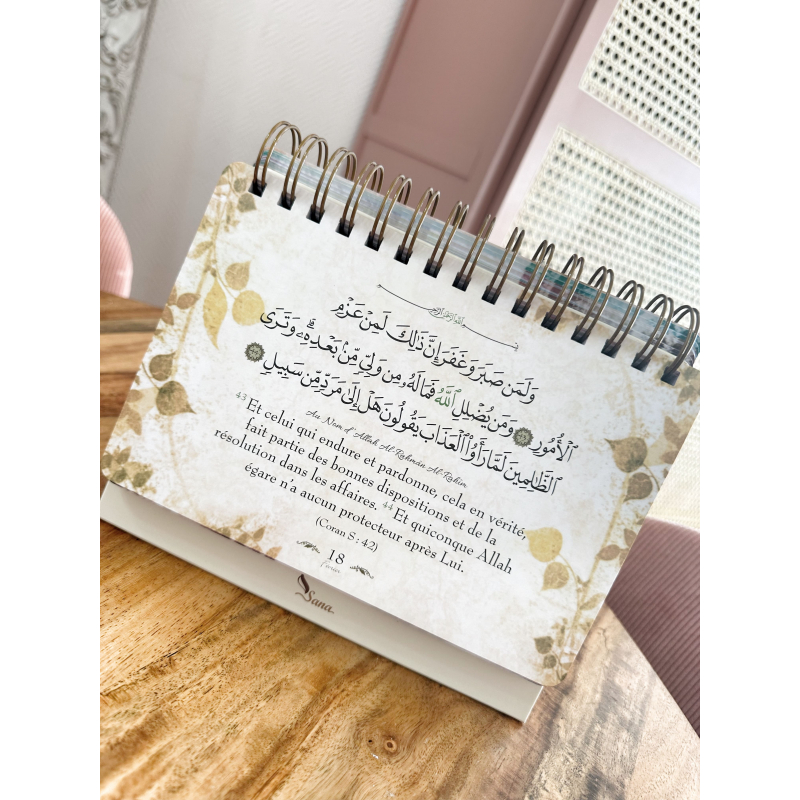 وَلَمَن صَبَرَ وَغَفَرَ إِنَّ ذَٰلِكَ لَمِنْ عَزْمِ
ٱلْأُمُورِ ۝ وَمَن يُضْلِلِ ٱللَّهُ فَمَا لَهُۥ مِن وَلِيٍّ مِّنۢ بَعْدِهِۦۗ وَتَرَى
ٱلظَّٰلِمِينَ لَمَّا رَأَوُا۟ ٱلْعَذَابَ يَقُولُونَ هَلْ إِلَىٰ مَرَدٍّ مِّن سَبِيلٍ ۝
Au Nom d'Allah Al-Rahmân Al-Rahîm
43 Et celui qui endure et pardonne, cela en vérité,
fait partie des bonnes dispositions et de la
résolution dans les affaires. 44 Et quiconque Allah
égare n'a aucun protecteur après Lui.
(Coran S : 42)
18
février
Sana